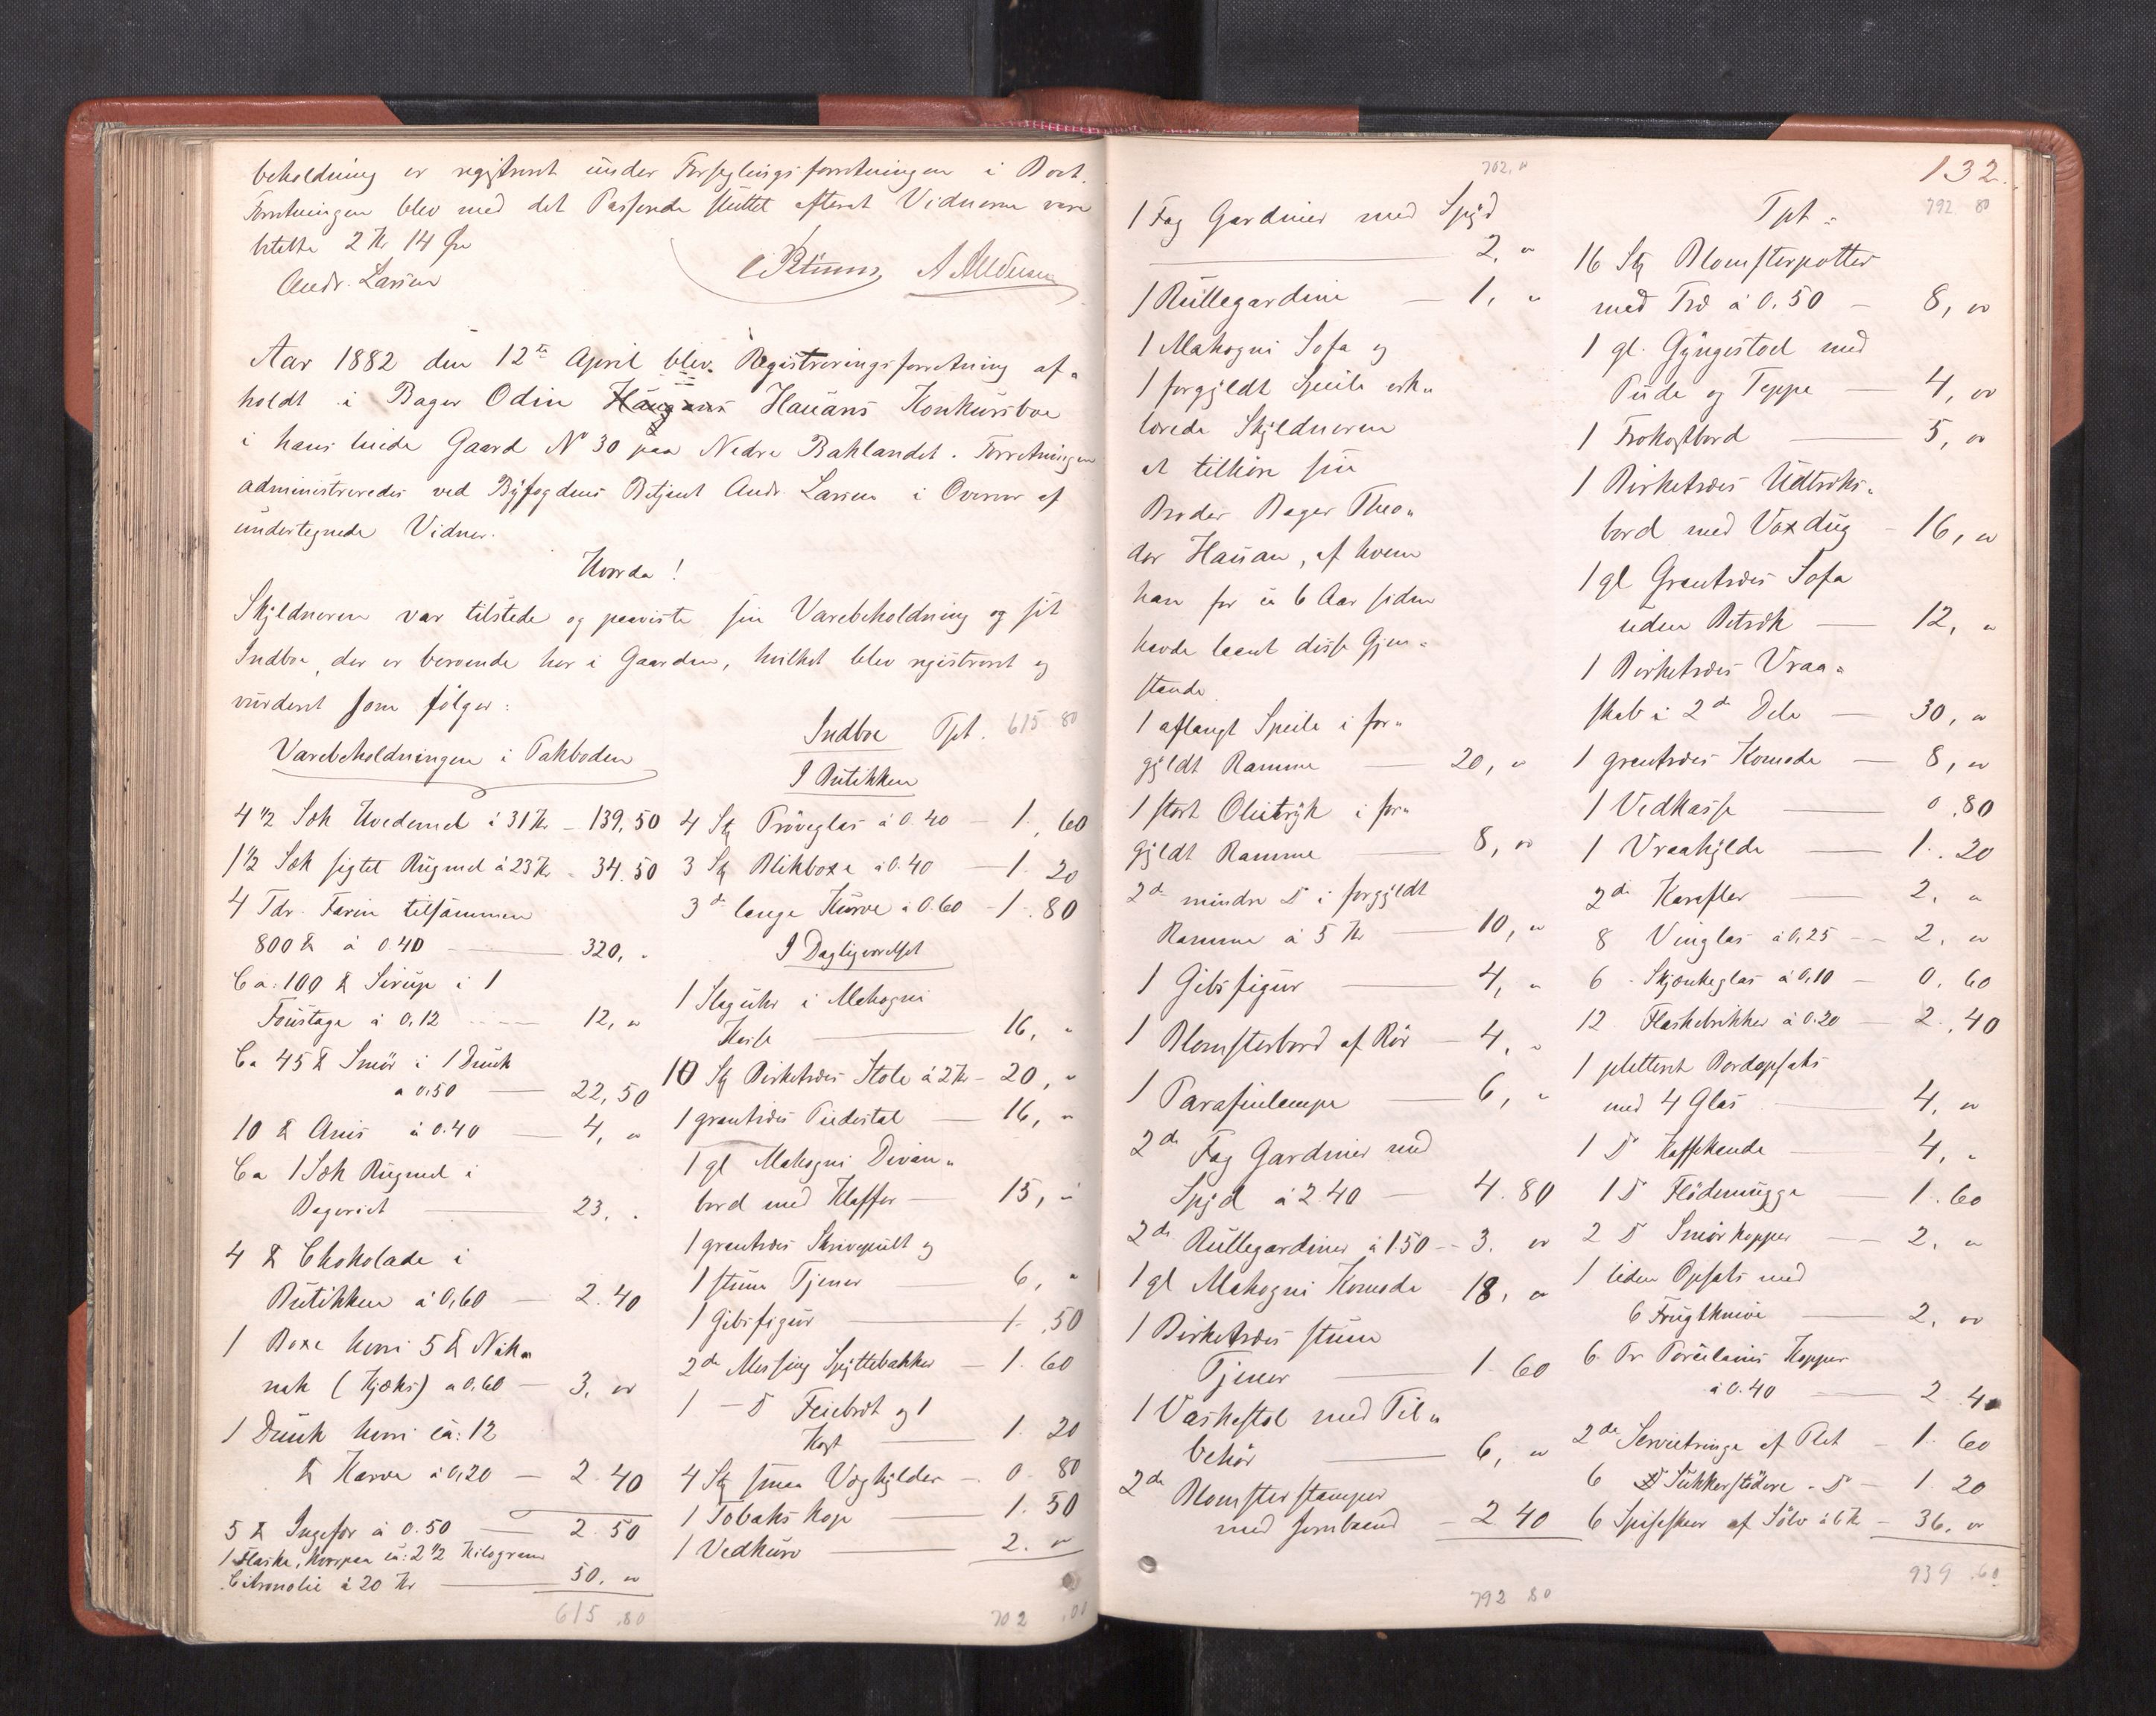 beholdning er registreret under Forseglingsforretningen i Boet.
Forretningen blev med det Passerede sluttet efterat Vidnerne vare
betalte 2 Kr 14 Øre
Andr. Larsen
Aar 1882 den 12te April blev Registreringsforretning af„
holdt i Bager Odin Hauans Konkursboe
i hans leiede Gaard No 30 paa Nedre Baklandet. Forretningen
administreredes ved Byfogdens Betjent Andr. Larsen i Overvær af
undertegnede Vidner.
Hvorda!
Skyldneren var tilstede og paaviste sin Varebeholdning og sit
Indboe, der er beroende her i Gaarden, hvilket blev registreret og
vurderet som følger:
Varebeholdningen i Pakboden
4 1/2 Sæk Hvedemel à 31 Kr – 139,50
1 1/2 Sæk sigtet Rugmel à 23 Kr – 34.50
4 Tdr. Farin tilsammen
800 ℔ à 0.40 — 320, „
Ca: 100 ℔ Sirup i 1
Foustage à 0,12 — 12, „
Ca 45 ℔ Smør i 1 Dunk
a 0,50 — 22,50
10 ℔ Anis à 0.40 — 4, „
Ca 1 Sæk Rugmel i
Bageriet — 23. „
4 ℔ Chokolade i
Butikken à 0,60 — 2.40
1 Boxe hvori 5 ℔ Nik„
nak (Kjæks) a 0,60 — 3. „
1 Dunk hvori ca: 12
℔ Karve à 0,20 — 2.40
5 ℔ Ingefær à 0.50 — 2.50
1 Flaske, hvorpaa ca: 2 1/2 Kilogram
Citronolie à 20 Kr — 50. „
615.80
Indboe Tpt. 615 80
I Butikken
4 Stk Prøveglas à 0.40 — 1.60
3 Stk Blikboxe à 0.40 — 1.20
3de lange Kurve à 0.60 – 1.80
I Dagligværelset
1 Slaguhr i Mahogni
Kasse — 16, „
10 Stk Birketræes Stole à 2 Kr – 20, „
1 grantræes Piedestal — 16, „
1 gl Mahogni Divan„
bord med Klaffer — 15, „
1 grantræes Skrivepult og
1 stum Tjener — 6, „
1 Gibsfigur — 1.50
2de Messing Spyttebakker — 1.60
1 – D Feiebræt og 1
Kost — 1.20
4 Stk smaa Væghylder — 0.80
1 Tobaks Kop — 1.50
1 Vedkurv — 2. „
702 .00
132.
702, „
1 Fag Gardiner med Spyd
2, „
1 Rullegardine — 1, „
1 Mahogni Sofa og
1 forgyldt Speile erk„
lærede Skyldneren
at tilhøre sin
Broder Bager Theo„
dor Hauan, af hvem
han for ca 6 Aar siden
havde laant disse Gjen„
stande
1 aflangt Speile i for„
gyldt Ramme — 20, „
1 stort Olietryk i for„
gyldt Ramme — 8, „
2de mindre D i forgyldt
Ramme à 5 Kr — 10, „
1 Gibsfigur — 4, „
1 Blomsterbord af Rør – 4, „
1 Parafinlampe — 6, „
2de Fag Gardiner med
Spyd à 2.40 — 4.80
2de Rullegardiner à 1.50 – 3. „
1 gl Mahogni Komode 18, „
1 Birketræes stum
Tjener — 1.60
1 Vaskestol med Til„
behør — 6, „
2de Blomsterstamper
med Jernbaand — 2 40
792 80
Tpt „ 792 80
16 Stk Blomsterpotter
med Træ à 0.50 — 8, „
1 gl. Gyngestol med
Pude og Teppe — 4, „
1 Frokostbord — 5, „
1 Birketræes Udtræks„
bord med Voxdug – 16, „
1 gl Grantræes Sofa
uden Betræk — 12, „
1 Birketræes Vraa„
skab i 2de Dele — 30, „
1 grantræes Komode — 8, „
1 Vedkasse — 0.80
1 Vraahylde — 1.20
2de Karafler — 2. „
8 Vinglas à 0,25 — 2. „
6 Skjænkeglas à 0,10 — 0.60
12 Flaskebrikker à 0.20 — 2.40
1 pletteret Bordopsats
med 4 Glas — 4, „
1 D Kaffekande — 4, „
1 D Flødemugge — 1.60
2 D Smørkopper — 2. „
1 liden Opsats med
6 Frugtknive — 2. „
6 Pr Porcelains Kopper
à 0.40 — 2 40
2de Servietringe af Plet — 1.60
6 Sukkerstødere „ D – 1.20
6 Spiseskeer af Sølv à 6 Kr – 36. „
939 .60